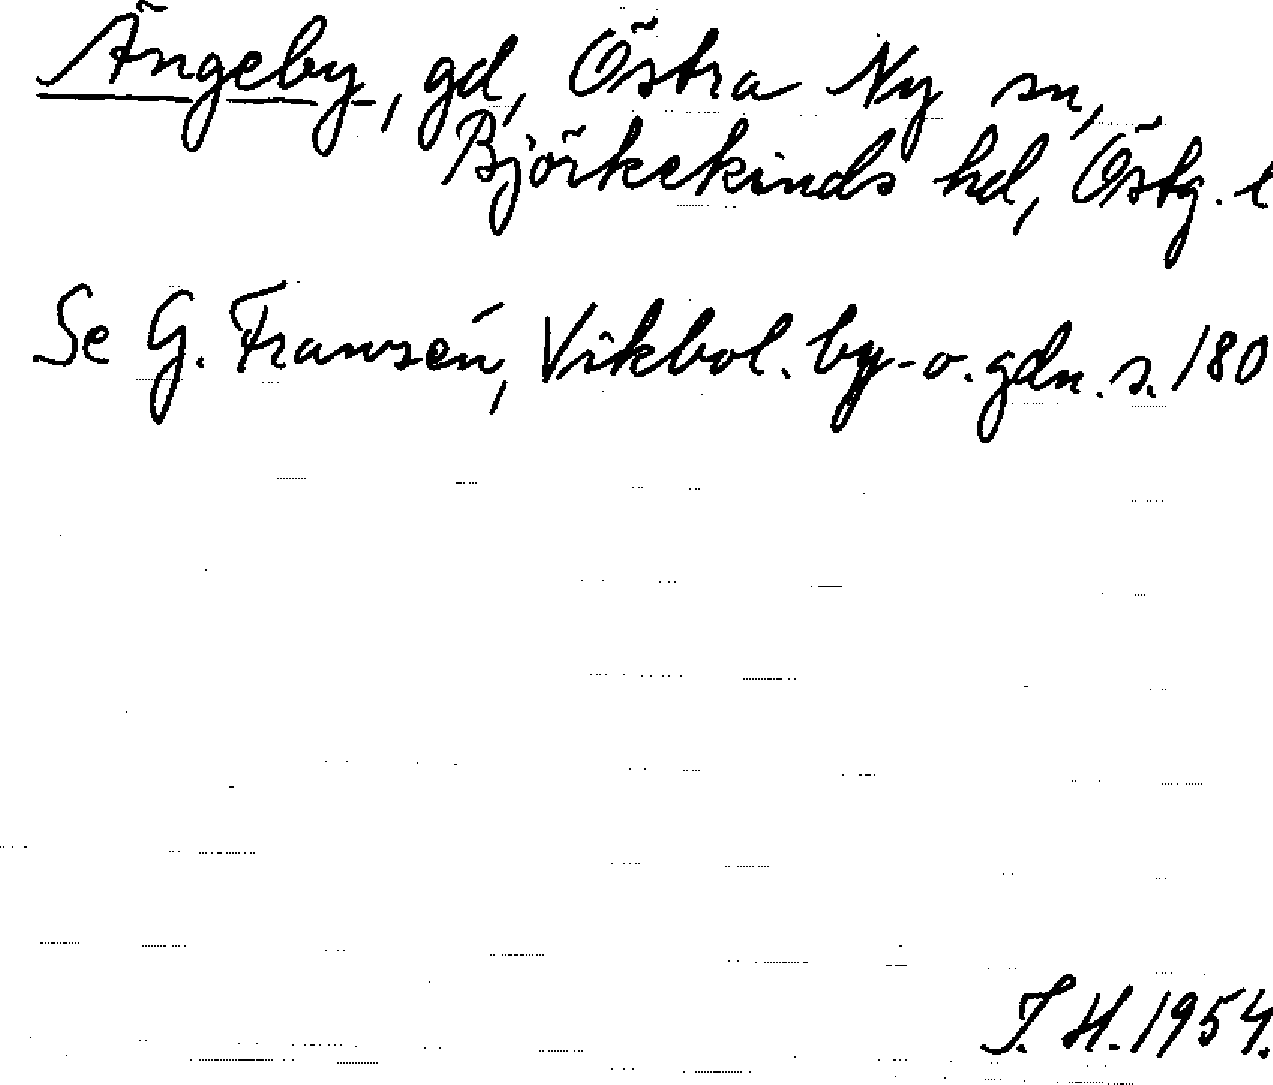 Ängeby, gd, Östra Ny sn,
Björkekinds hd, Östg. l
Se G. Franzén, Vikbol. by- o. gdn. s. 180
J. H. 1954.